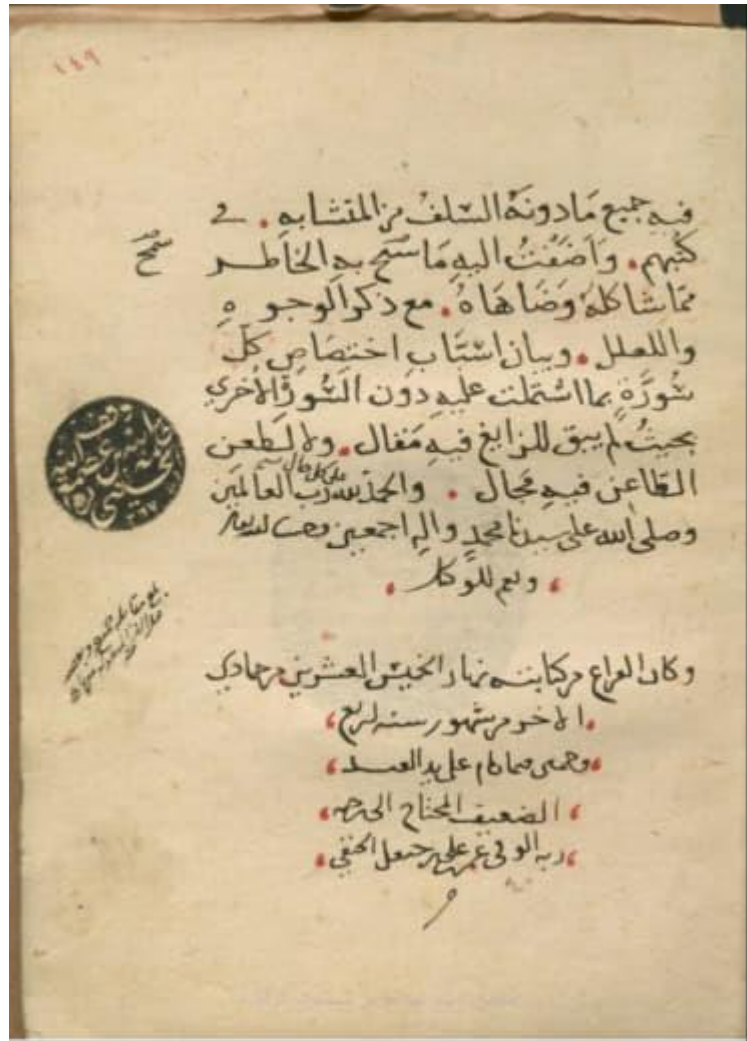 ١٤٩
فيه جميع ما دونه السلف من المتشابه . في
كتبهم . واضفت اليه ما سنح به الخاطر
مما شاكله وضاهاه . مع ذكر الوجوه
والعلل . وبيان اسباب اختصاص كل
سورة بما اشتملت عليه دون السورة الاخري
بحيث لم يبق للزايغ فيه مقال . ولا لطعن
الطاعن فيه مجال . والحمد لله رب العالمين
على كل حال
وصلى الله على سيدنا محمد واله اجمعين
ونعم الوكيل
وكان الفراغ من كتابته نهار الخميس العشرين من جمادي
الاخر من شهور سنة اربع
وخمسين على يد العبد
الضعيف المحتاج الى رحمة
ربه الوفي عمر بن علي بن الحنفي